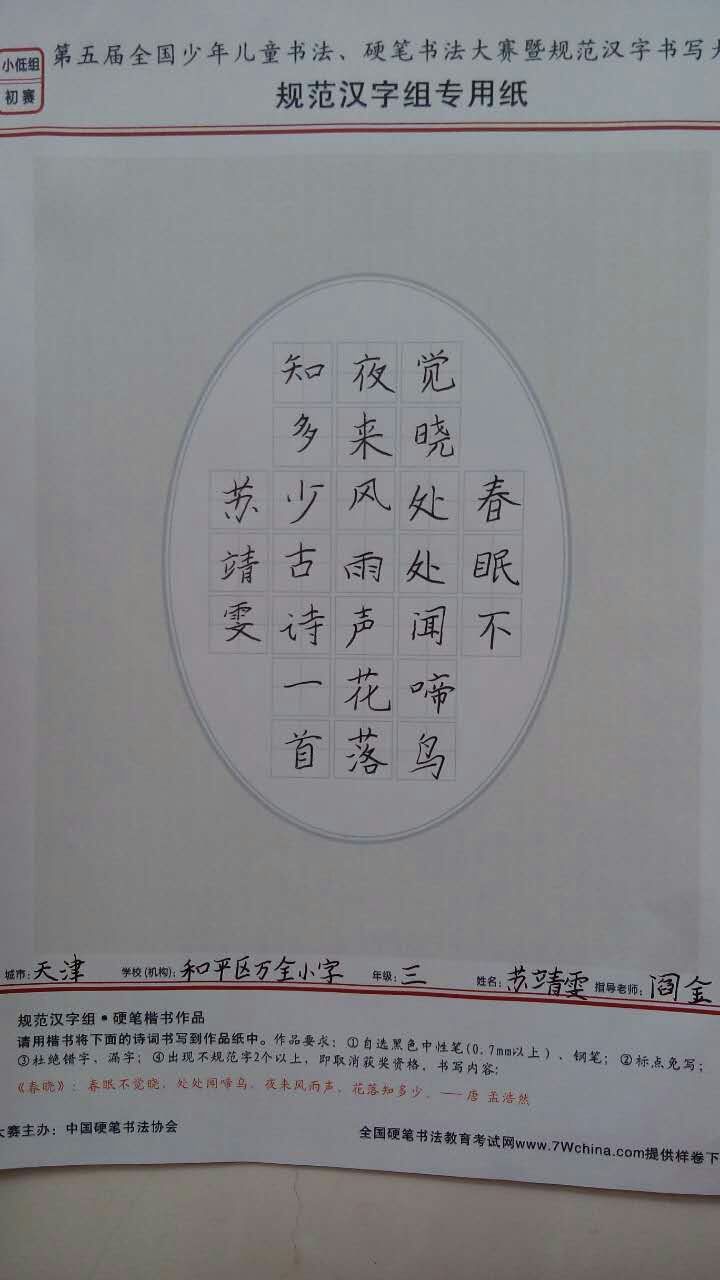 小低组
初赛
第五届全国少年儿童书法、硬笔书法大赛暨规范汉字书写
规范汉字组专用纸
春眠不
觉晓处处闻啼鸟
夜来风雨声花落
知多少古诗一首
苏靖雯
城市：天津 学校(机构)：和平区万全小学 年级：三 姓名：苏靖雯 指导老师：阎金
规范汉字组•硬笔楷书作品
请用楷书将下面的诗词书写到作品纸中。作品要求：①自选黑色中性笔(0.7mm以上)、钢笔；②标点免写；
③杜绝错字、漏字；④出现不规范字2个以上，即取消获奖资格，书写内容：
《春晓》：春眠不觉晓，处处闻啼鸟。夜来风雨声，花落知多少。——唐 孟浩然
大赛主办：中国硬笔书法协会
全国硬笔书法教育考试网www.7Wchina.com提供样卷下